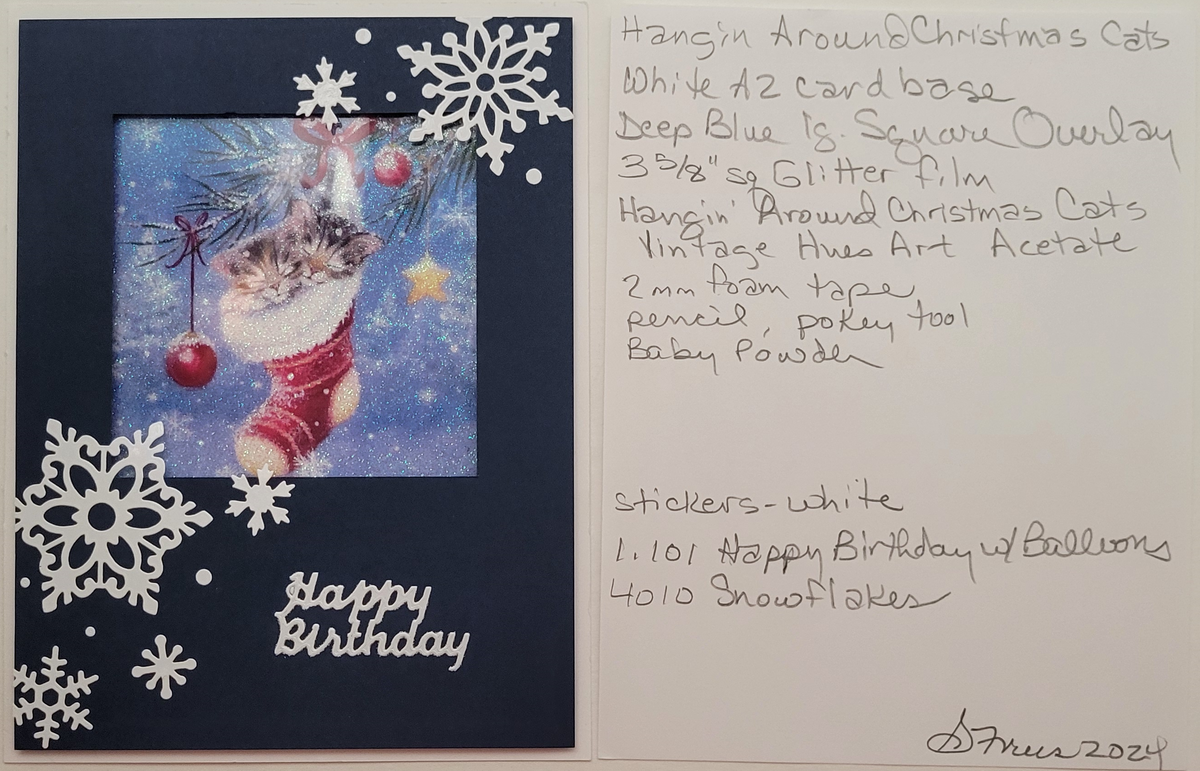 Happy
Birthday
Hangin Around Christmas Cats
White A2 card base
Deep Blue lg. Square Overlay
3 5/8" sq Glitter film
Hangin' Around Christmas Cats
Vintage Hues Art Acetate
2mm foam tape
pencil, pokey tool
Baby Powder
stickers-white
1.101 Happy Birthday w/ Balloons
4010 Snowflakes
2024